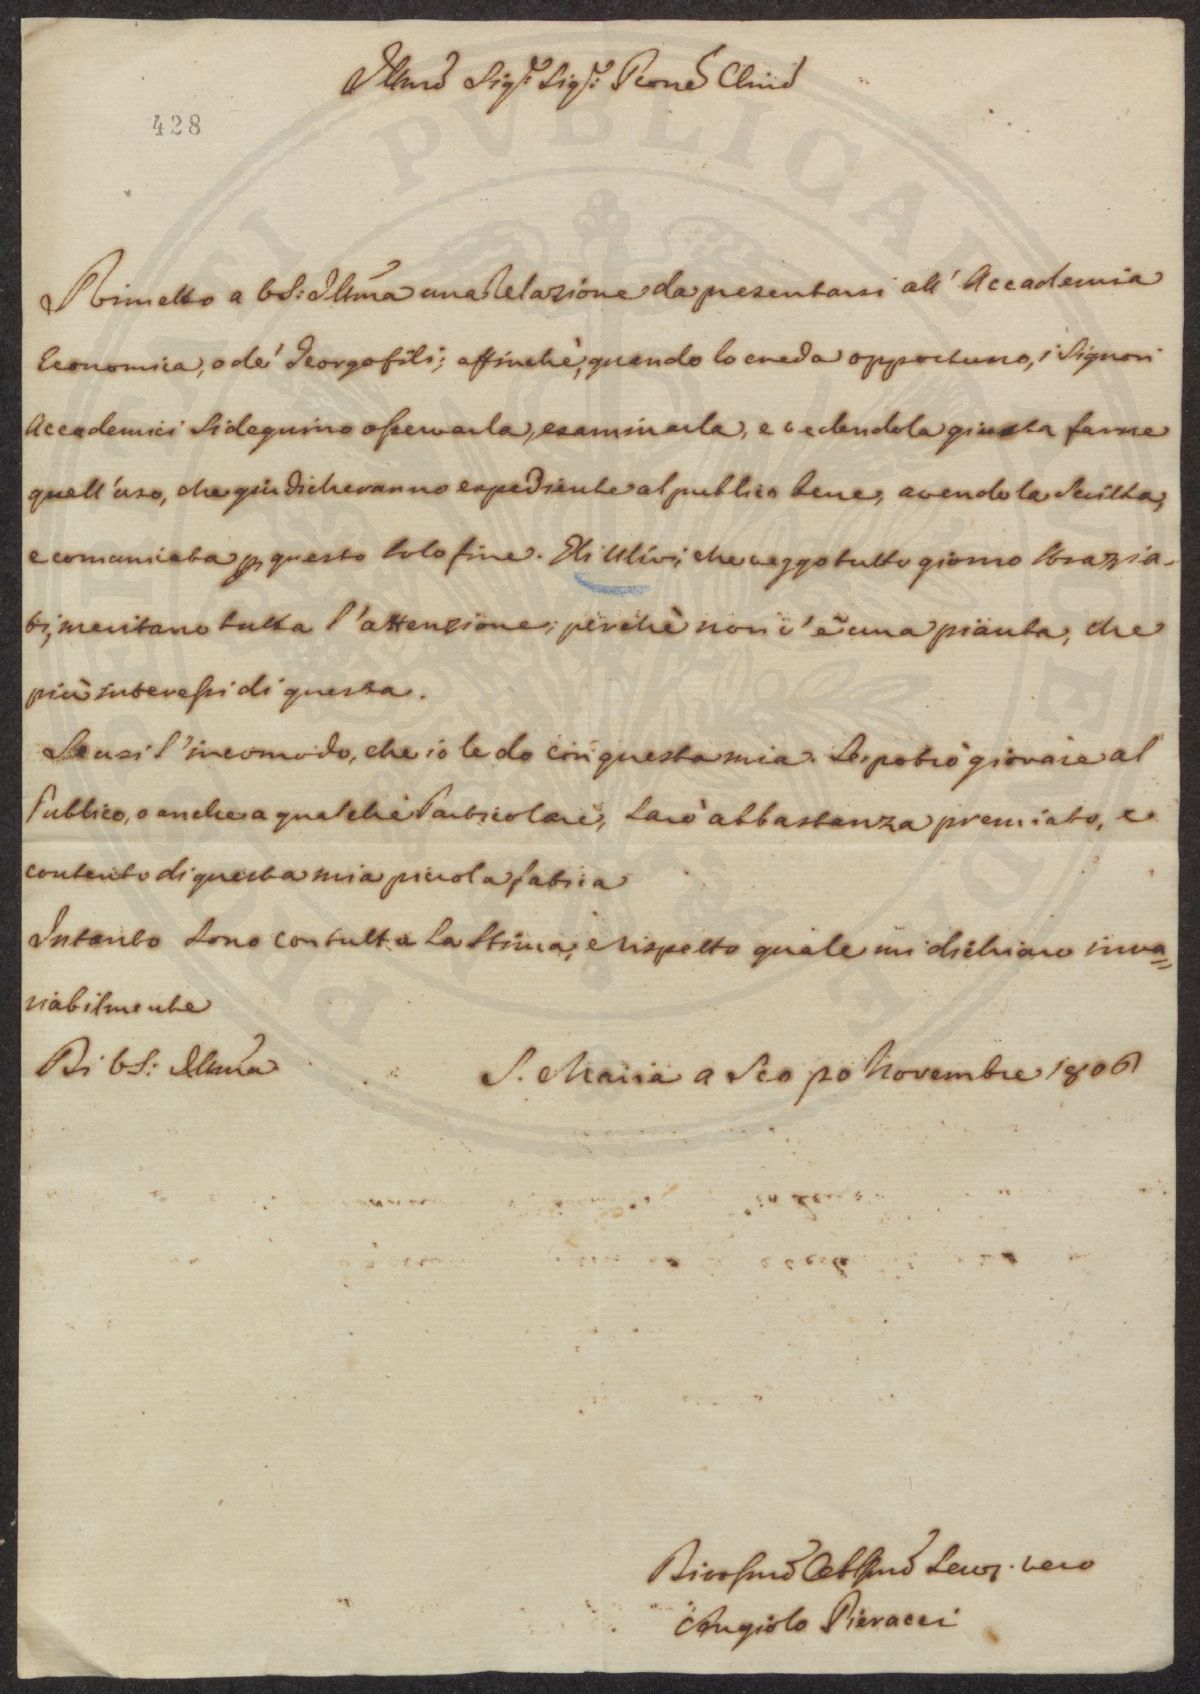 Illmo Sigr: Sigr: Prone Clmo
428
Rimetto a VS: Illma una Relazione da presentarsi all' Accademia
Economica, o de' Georgofili; affinchè, quando lo creda opportuno, i Signori
Accademici si degnino osservarla, esaminarla, e vedendola giusta farne
quell' uso, che giudicheranno espediente al publico bene, avendola scritta,
e comunicata p questo solo fine. Gli Ulivi, che veggo tutto giorno strazia-
ti, meritano tutta l'attenzione; perchè non v'è una pianta, che
più interessi di questa.
Scusi l'incomodo, che io le do con questa mia. Se potrò giovare al
Publico, o anche a qualche Particolare, sarò abbastanza premiato, e
contento di questa mia piccola fatica
Intanto sono con tutta la stima, e rispetto quale mi dichiaro inva=
riabilmente
Di VS: Illma
S. Maria a Sco po Novembre 1806
Divosmo Obblmo Serv. vero
Angiolo Pieracci